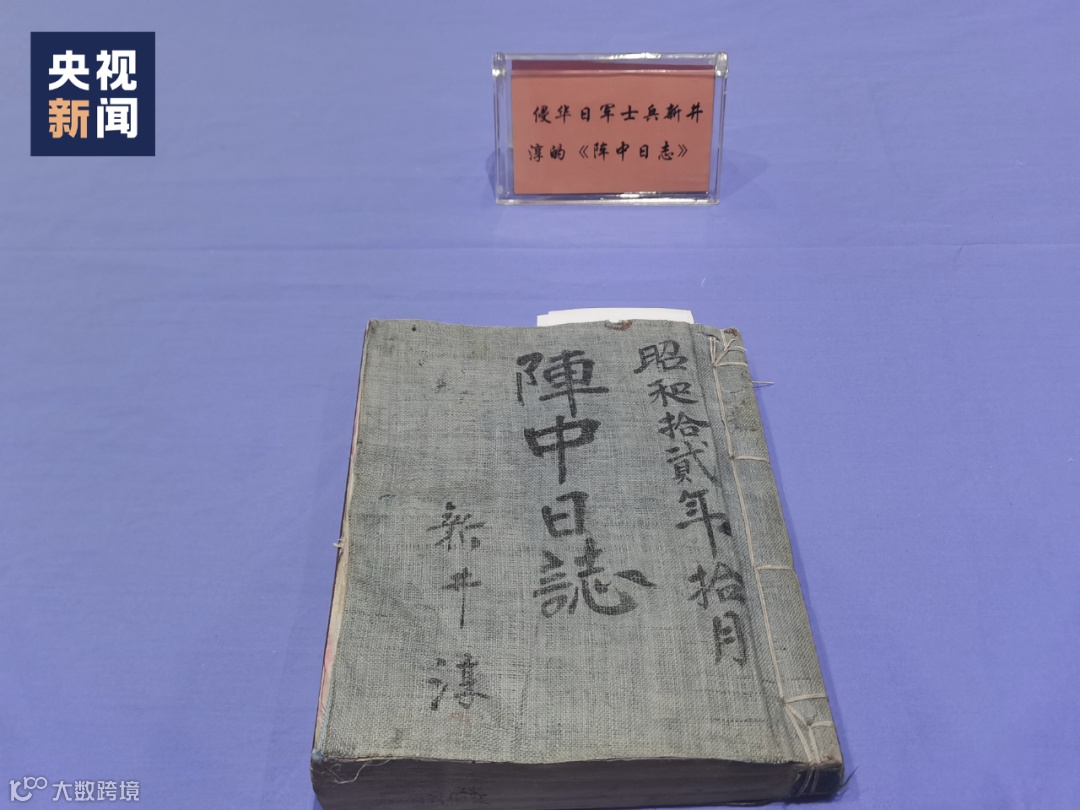 央视
新闻
侵华日军士兵新井
淳的《阵中日志》
昭和拾貳年拾月
陣中日誌
新井淳
大数跨境